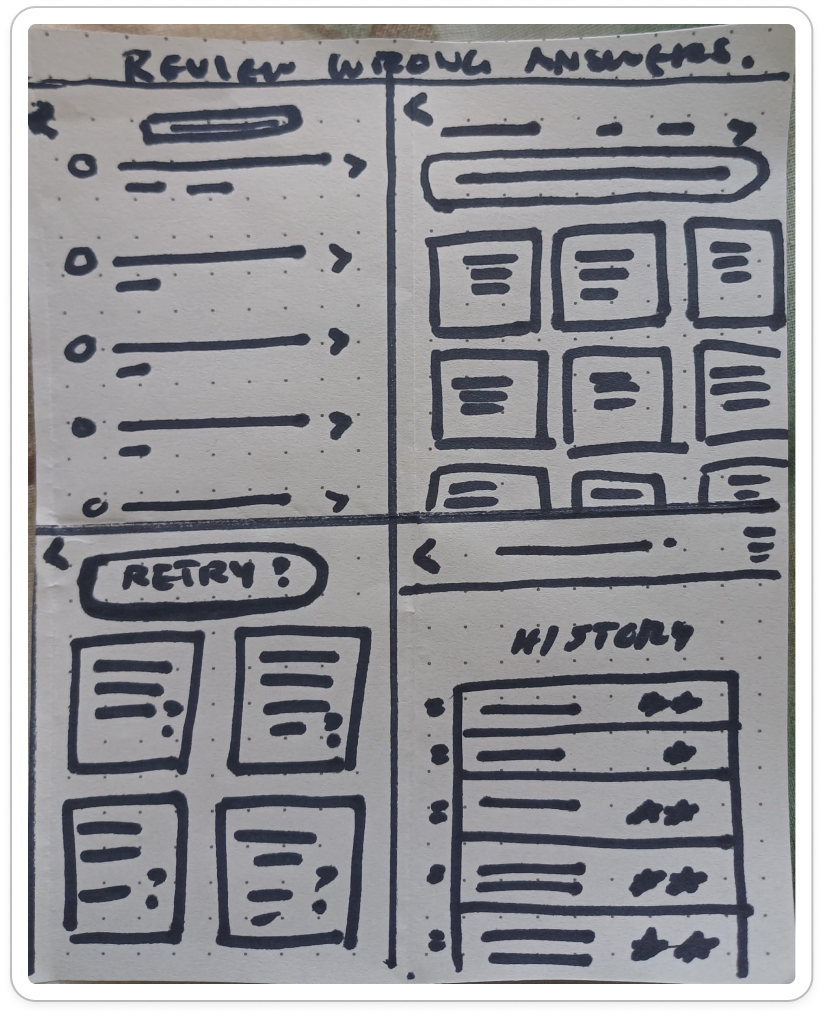 REVIEW WRONG ANSWERS.
RETRY ?
HISTORY